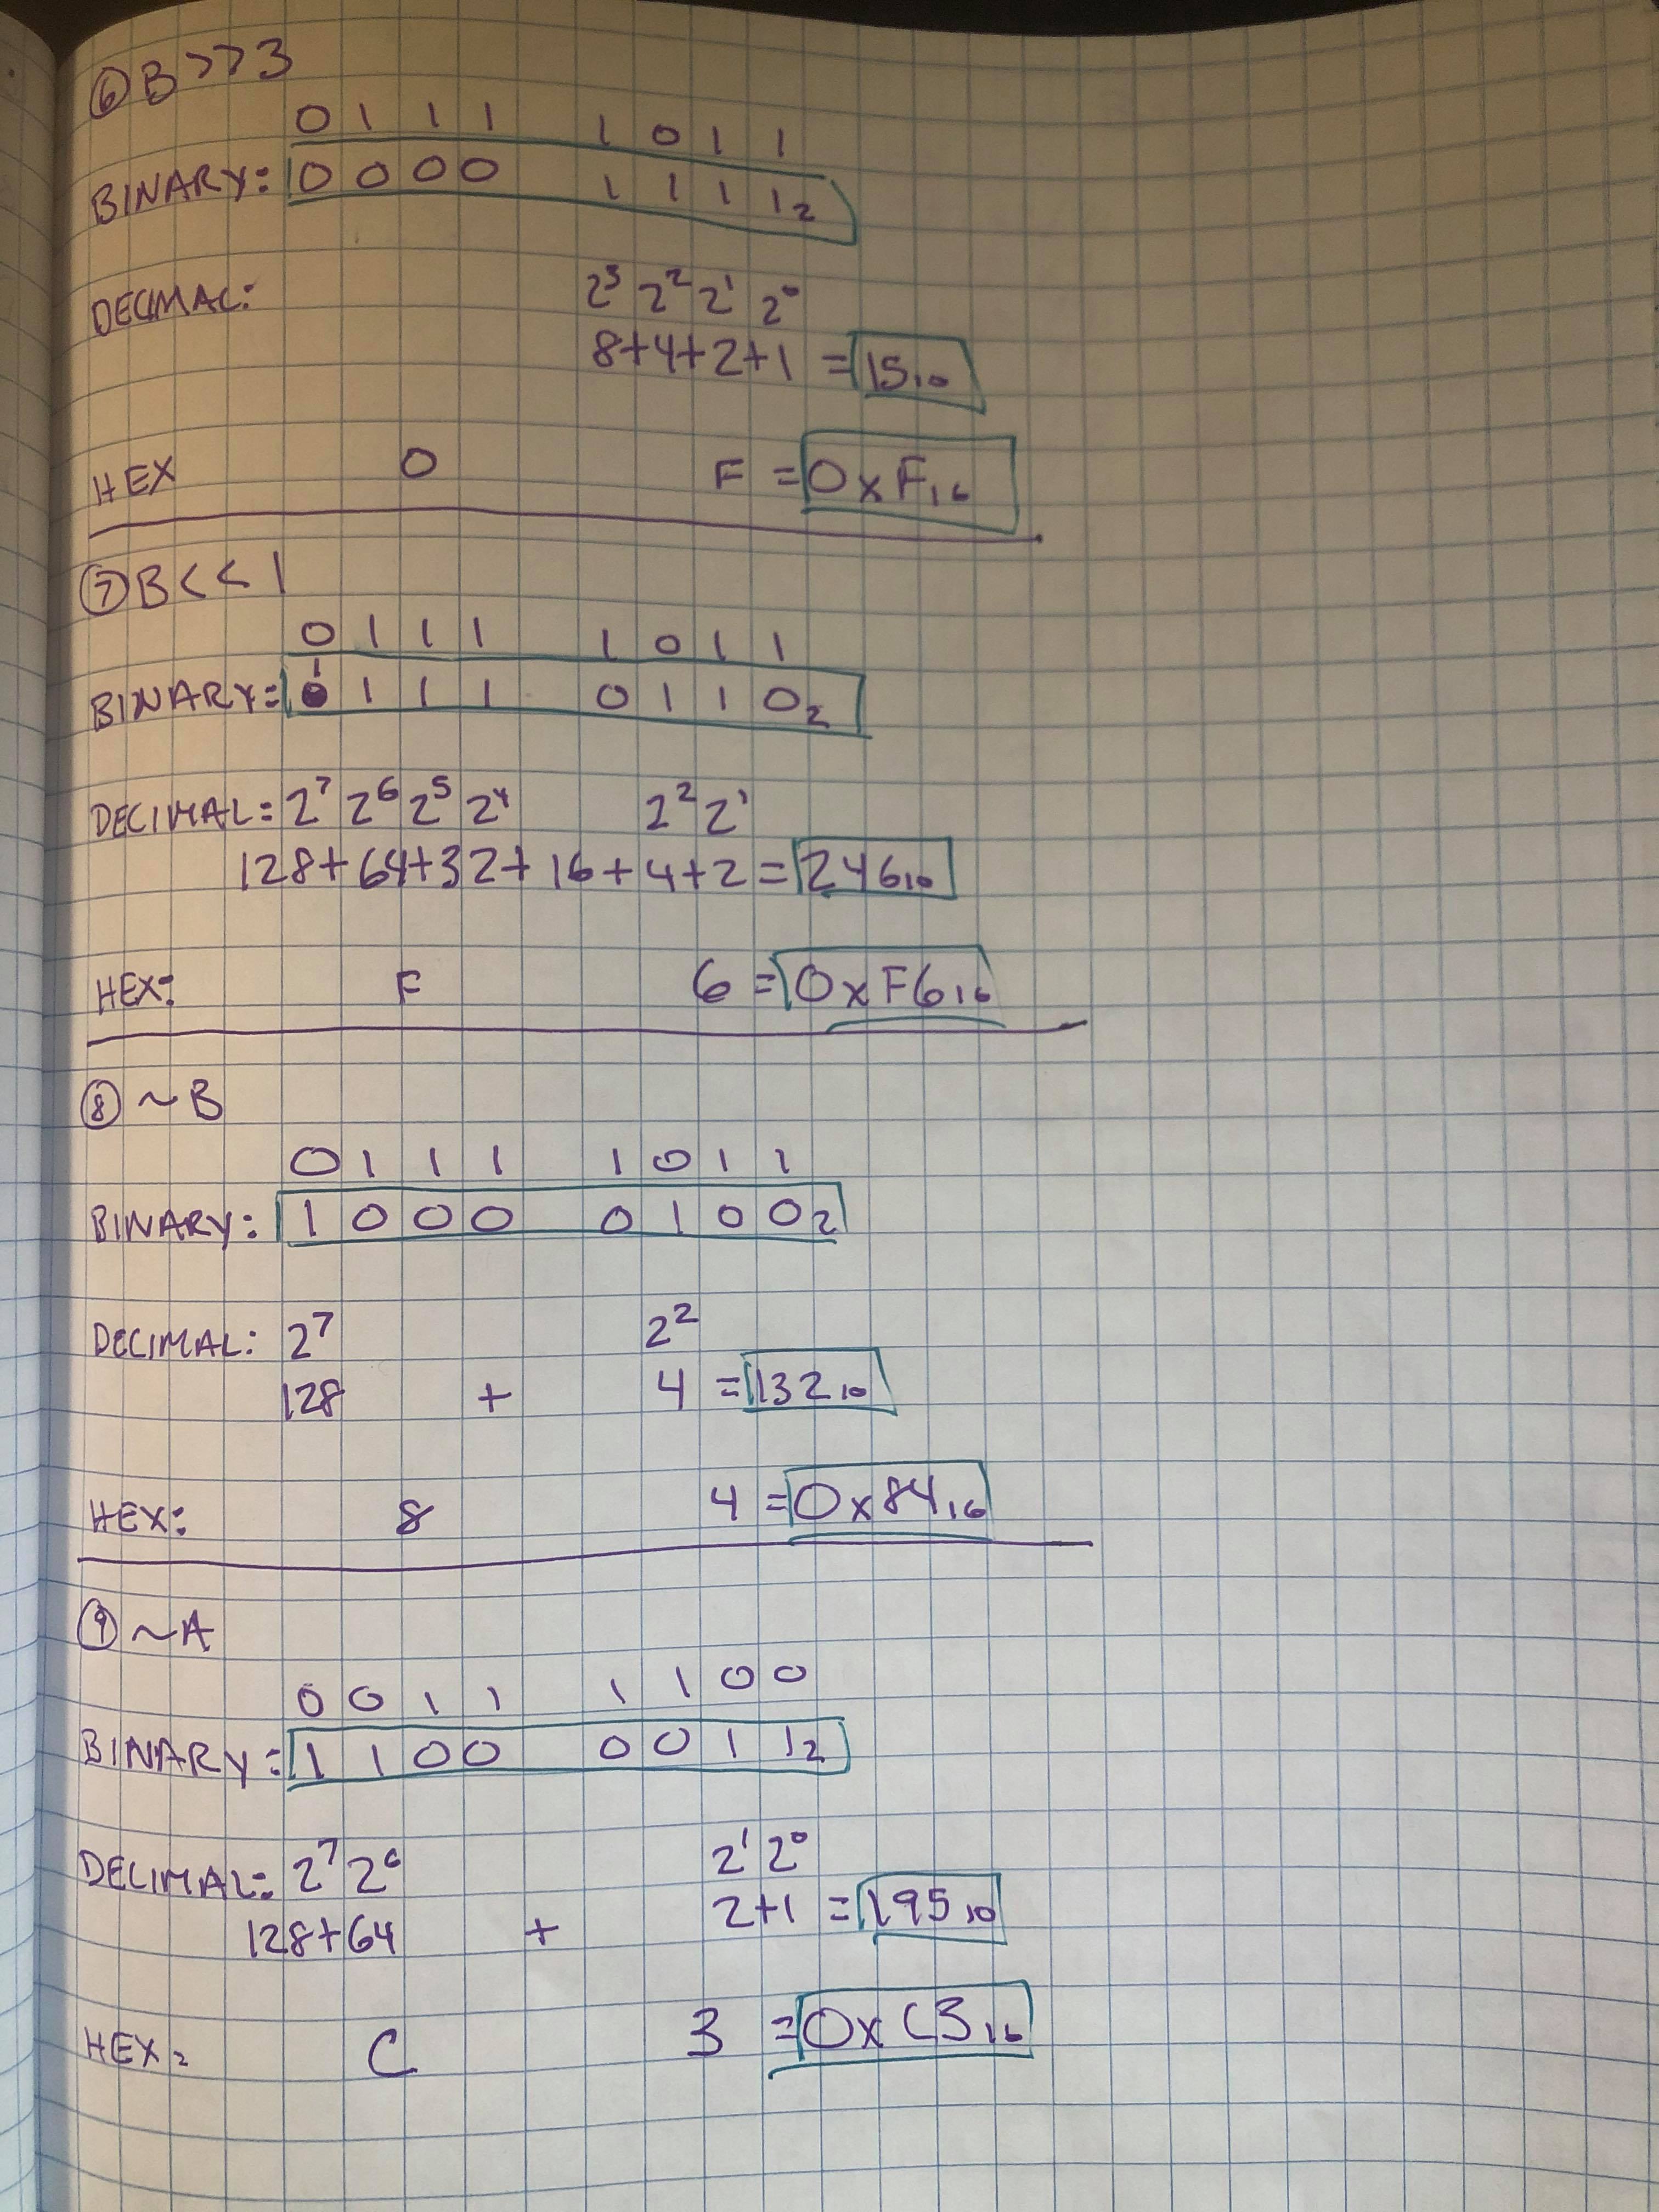 ⑥ B >> 3
0 1 1 1 1 0 1 1
BINARY: 0 0 0 0 1 1 1 1₂
DECIMAL: 2³ 2² 2¹ 2⁰
8+4+2+1 = 15₁₀
HEX 0 F = 0xF₁₆
⑦ B << 1
0 1 1 1 1 0 1 1
BINARY: 1 1 1 1 0 1 1 0₂
DECIMAL: 2⁷ 2⁶ 2⁵ 2⁴ 2² 2¹
128+64+32+16+4+2 = 246₁₀
HEX: F 6 = 0xF6₁₆
⑧ ~B
0 1 1 1 1 0 1 1
BINARY: 1 0 0 0 0 1 0 0₂
DECIMAL: 2⁷ 2²
128 + 4 = 132₁₀
HEX: 8 4 = 0x84₁₆
⑨ ~A
0 0 1 1 1 1 0 0
BINARY: 1 1 0 0 0 0 1 1₂
DECIMAL: 2⁷ 2⁶ 2¹ 2⁰
128+64 + 2+1 = 195₁₀
HEX: C 3 = 0xC3₁₆